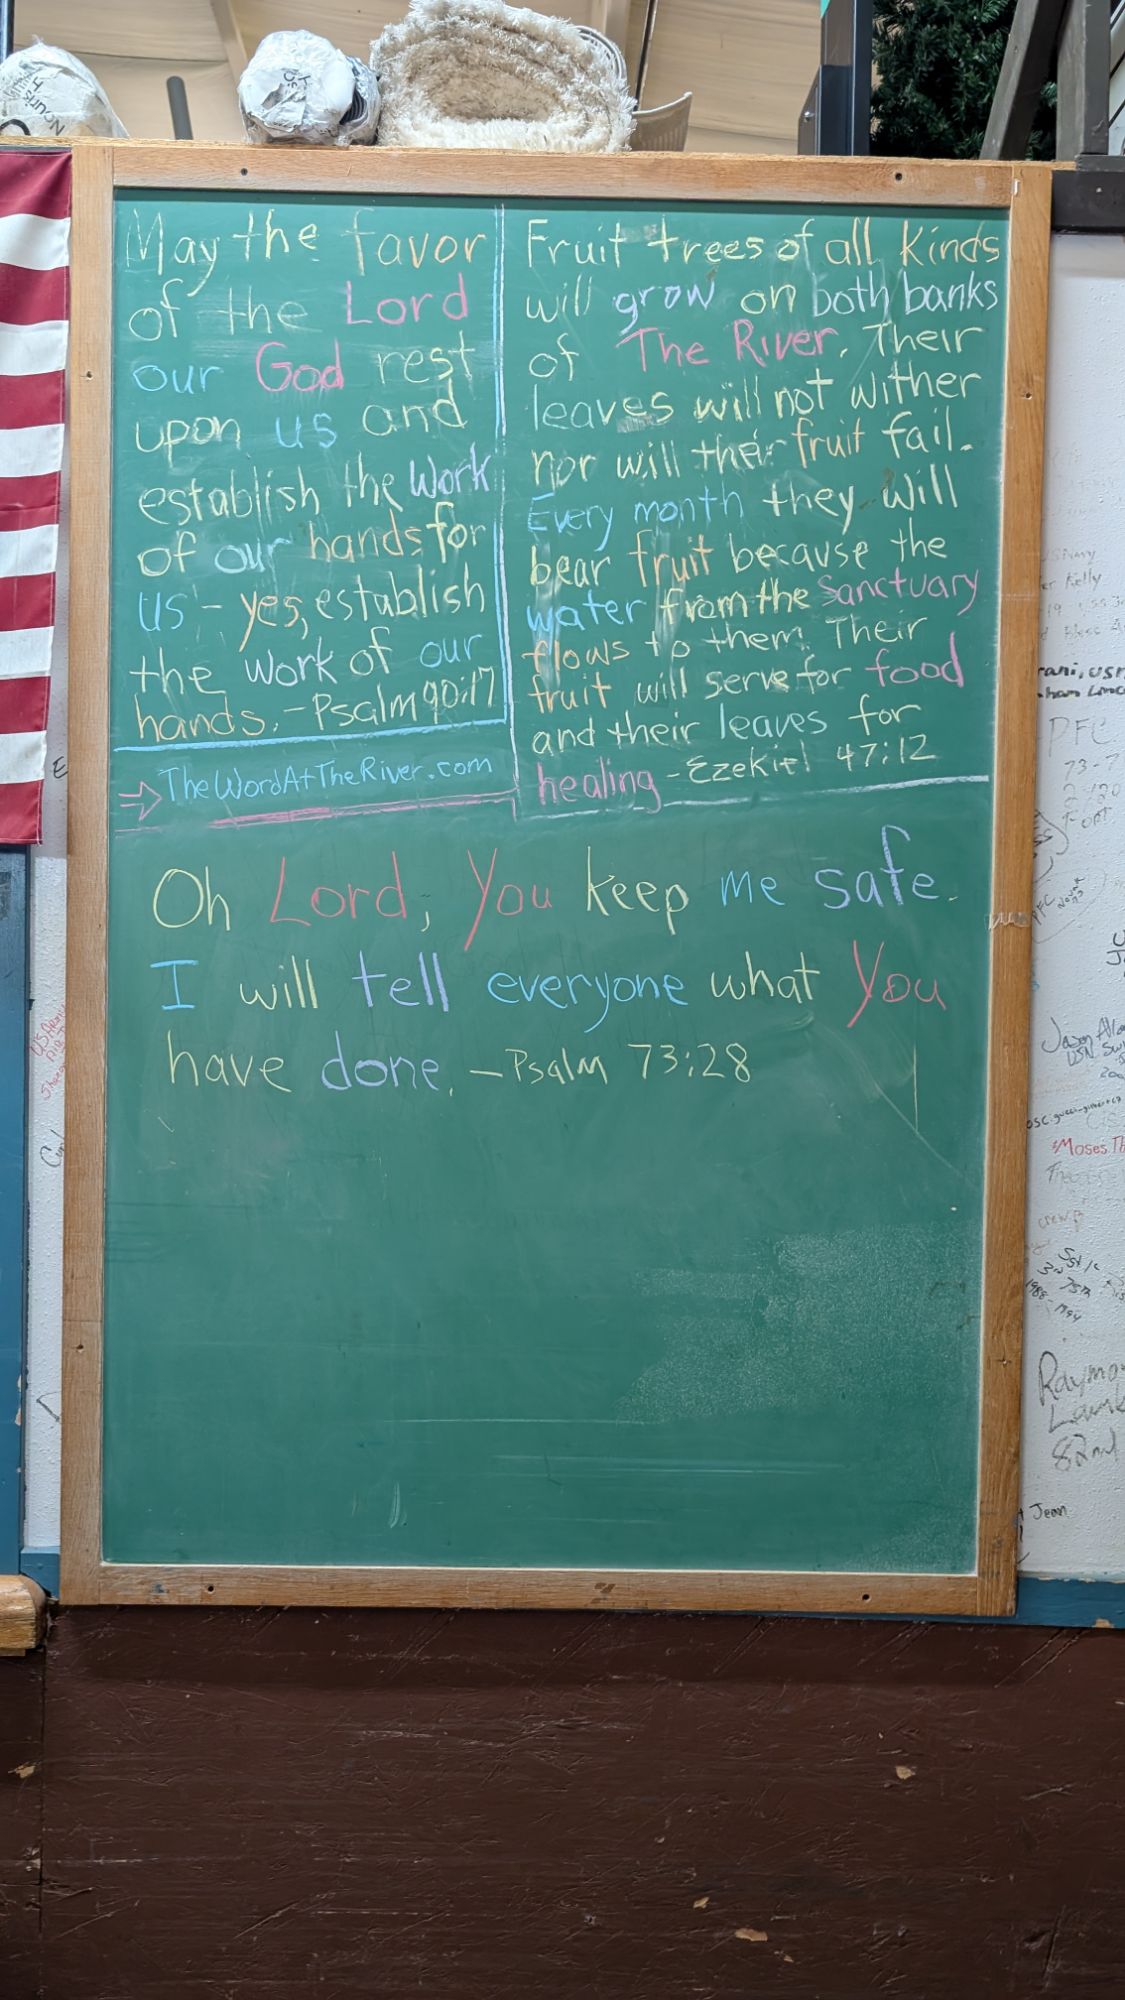 May the favor
of the Lord
our God rest
upon us and
establish the work
of our hands for
us - yes, establish
the work of our
hands. - Psalm 90:17
TheWordAtTheRiver.com
Fruit trees of all kinds
will grow on both banks
of The River. Their
leaves will not wither
nor will their fruit fail.
Every month they will
bear fruit because the
water from the Sanctuary
flows to them. Their
fruit will serve for food
and their leaves for
healing - Ezekiel 47:12
Oh Lord, You keep me safe.
I will tell everyone what You
have done. - Psalm 73:28
Kelly
PFC
73-7
PFC
Jason
USN
Moses
1988-
May
82nd
Jean